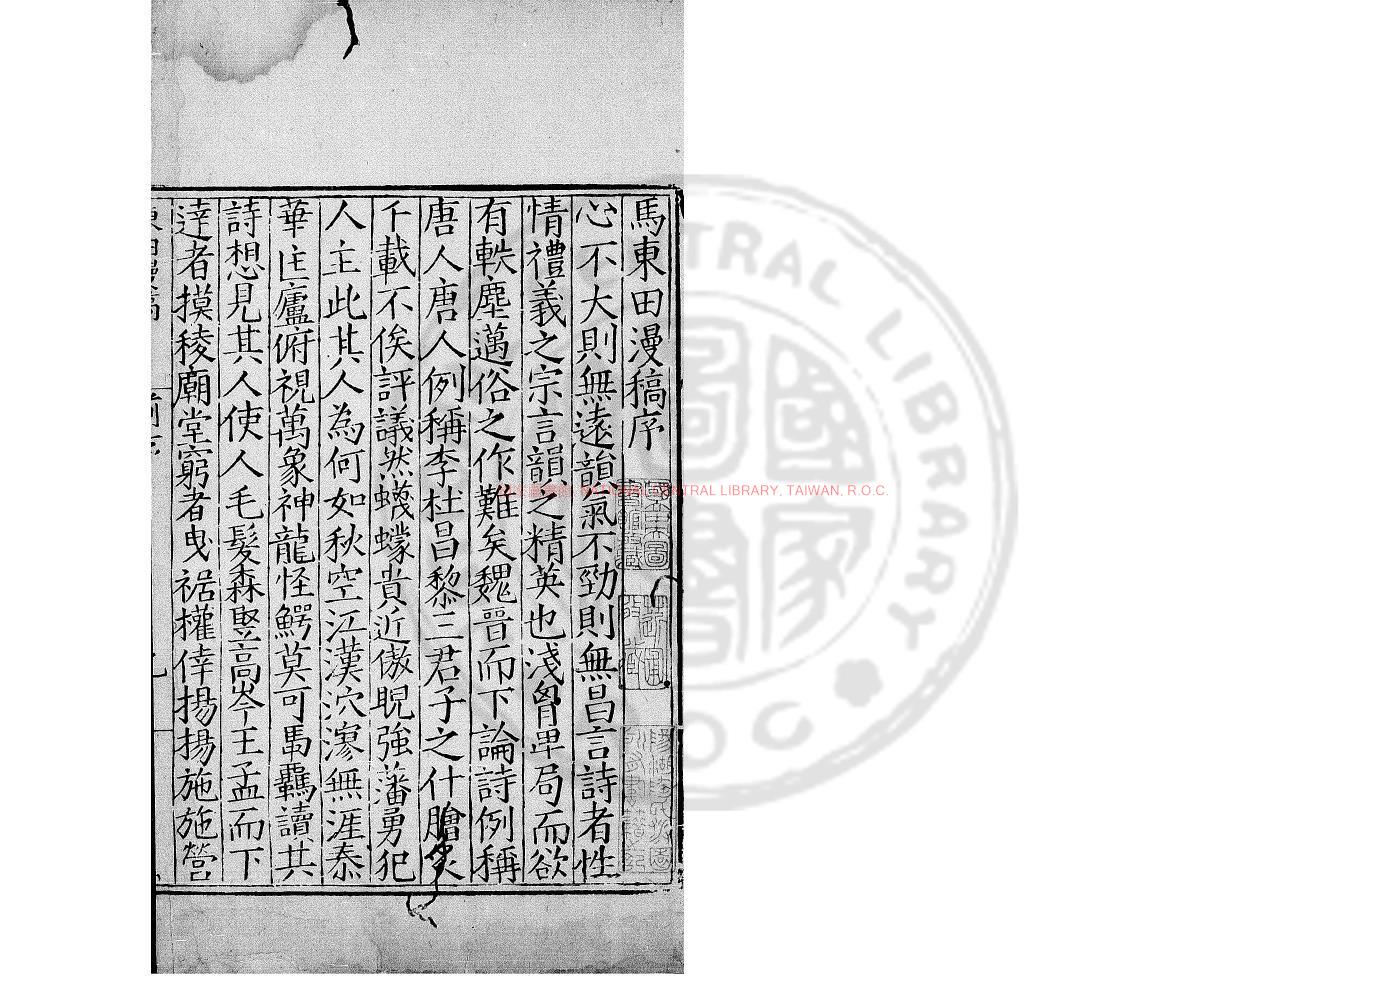 馬東田漫稿序
心不大則無遠韻氣不勁則無昌言詩者性
情禮義之宗言韻之精英也淺胷畢局而欲
有軼塵邁俗之作難矣魏晉而下論詩例稱
唐人唐人例稱李杜昌黎三君子之什膾炙
千載不俟評議然蠛蠓貴近傲睨強藩勇犯
人主此其人為何如秋空江漢泬漻無涯泰
華匡廬俯視萬象神龍怪鰐莫可馬覊讀其
詩想見其人使人毛髮森竪高岑王孟而下
達者摸稜廟堂窮者曳裾權倖揚揚施施營
NATIONAL CENTRAL LIBRARY, TAIWAN, R.O.C.
CENTRAL LIBRARY